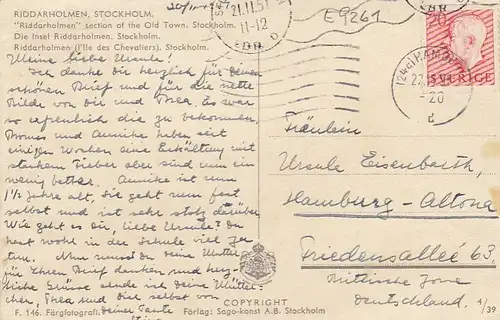 RIDDARHOLMEN, STOCKHOLM.
"Riddarholmen" section of the Old Town. Stockholm.
Die Insel Riddarholmen. Stockholm.
Riddarholmen (l'Ile des Chevaliers). Stockholm.
21.11.51
11-12
E9261
20
SVERIGE
(24a) HAMB
-20
d
Meine liebe Ursula!
Ich danke dir herzlich für den
schönen Brief und für die nette
Bilde von dir und Thea. Es war
so erfreulich die zu bekommen.
und Annike haben seit
einigen Wochen eine Erkältung mit
starkem Fieber aber sind nun ein
wenig better. Annike ist nun
1½ Jahre alt, sie geht nun fest
selbst und ist sehr stolz darüber.
Wie geht es dir, liebe Ursula? Du
hast wohl in der Schule viel zu
tun. Nun musst du deine Mutter
für Ihren Brief danken und herz-
liche Grüsse sende ich deine Mütter-
chen, Thea und dir selbst von
deiner Tante
Fräulein
Ursula Eisenbarth,
Hamburg-Altona
Friedensallee 63,
Brittische Zone
Deutschland.
4/39
COPYRIGHT
F. 146. Färgfotografi.
Förlag: Sago-konst A.B. Stockholm